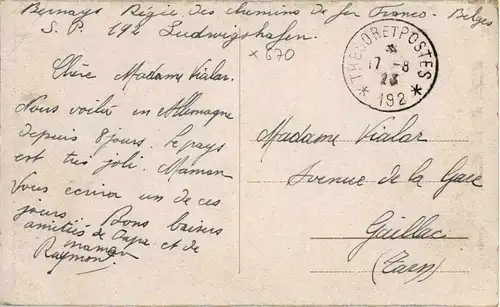 Bernays Régie des chemins de fer Franco-Belges
S.P. 192 Ludwigshafen.
× 670
Chère Madame Vialar.
Nous voilà en Allemagne
depuis 8 jours. le pays
est très joli. Maman
Vous écrira un de ces
jours. Bons baisers
amitiés de Papa et de
maman
Raymond
* TRESOR ET POSTES *
17 - 8
23
192
Madame Vialar
Avenue de la Gare
Gaillac
(Tarn)